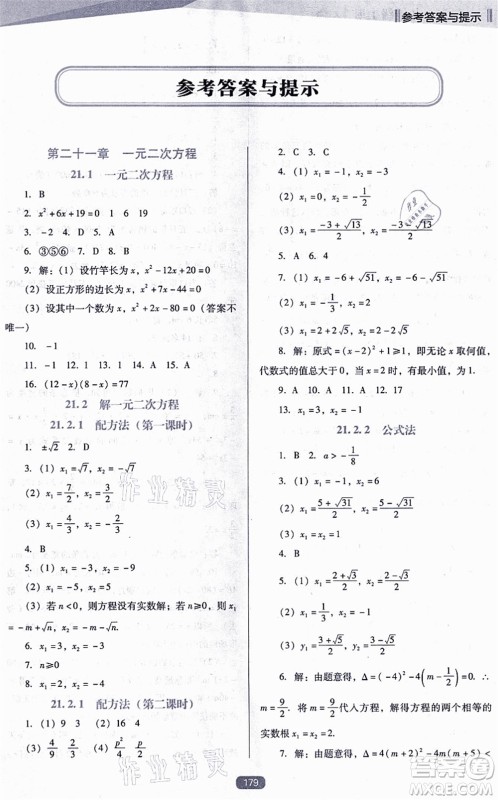 参考答案与提示
参考答案与提示
第二十一章 一元二次方程
21.1 一元二次方程
1. B
2. x²+6x+19=0 1 6 19
3. -2 4. D
6. ③⑤⑥ 7. D 8. B
9. 解：(1) 设竹竿长为 x，x²-12x+20=0
(2) 设正方形的边长为 x，x²+7x-44=0
(3) 设其中一个数为 x，x²+2x-80=0（答案不
唯一）
10. -1
11. -1 12. 1 13. 1 14. A 15. A
16. (12-x)(8-x)=77
21.2 解一元二次方程
21.2.1 配方法（第一课时）
1. ±√7 ±√2 2. D
3. (1) x₁=√7, x₂=-√7
(2) x₁=7/2, x₂=-7/2
(3) x₁=4/3, x₂=-2/3
4. B
5. (1) x₁=-3, x₂=-9
(2) x₁=5, x₂=-5
(3) 若 n<0，则方程没有实数解；若 n≥0，则 x₁
=-m+√n, x₂=-m-√n.
6. x₁=3, x₂=-3
7. n≥0
8. x₁=-4, x₂=2
21.2.1 配方法（第二课时）
1. (1) 9 3 (2) 16 4
(3) 9/4 3/2 (4) p²/4 p/2
2. C 3. C
4. (1) x₁=-1, x₂=-3
(2) x₁=0, x₂=-1/2
(3) x₁=(-3+√13)/2, x₂=(-3-√13)/2
5. A 6. 4
7. (1) x₁=-6+√51, x₂=-6-√51
(2) x₁=-1/3, x₂=-2
8. 解：原式=(x-2)²+1≥1，即无论 x 取何值，
代数式的值总大于 0，当 x=2 时，有最小值，为 1.
9. A 10. A 11. A 12. 17
13. x₁=3, x₂=-1
21.2.2 公式法
1. B 2. a>-1/8
3. (1) x₁=4, x₂=-1
(2) x₁=(5+√31)/2, x₂=(5-√31)/2
4. B
5. (1) x₁=(2+√3)/2, x₂=(2-√3)/2
(2) x₁=1/3, x₂=-2
(3) y₁=y₂=√2/2
6. 解：由题意得，Δ=4²-4(m-1/2)=0. ∴
m=9/2. 将 m=9/2 代入方程，解得方程的两个相等的
实数根 x₁=x₂=-2.
7. 解：由题意得，Δ=4(m-2)²-4m²<
179